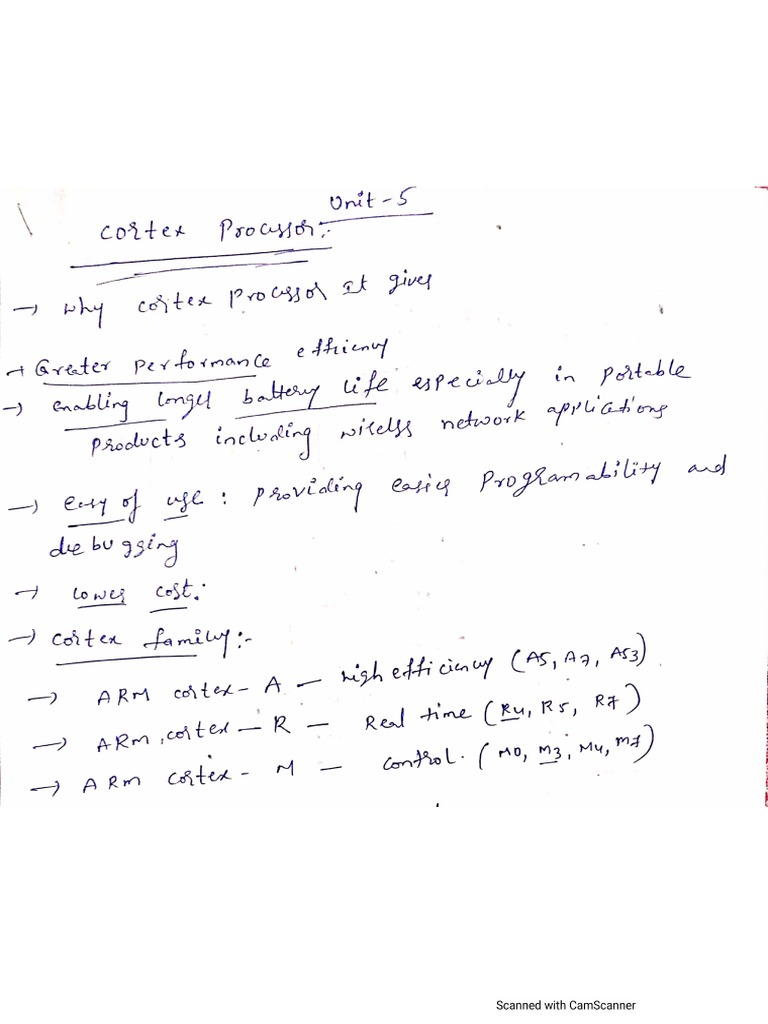 Unit-5
Cortex Processor:-
→ Why cortex Processor It gives
→ Greater Performance efficiency
→ enabling longer battery life especially in portable
products including wireless network applications
→ easy of use : providing easier Programability and
debugging
→ Lower cost:
→ Cortex family:-
→ ARM cortex - A — High efficiency (A5, A7, A53)
→ ARM, cortex — R — Real time (R4, R5, R7)
→ ARM cortex - M — control. (M0, M3, M4, M7)
Scanned with CamScanner